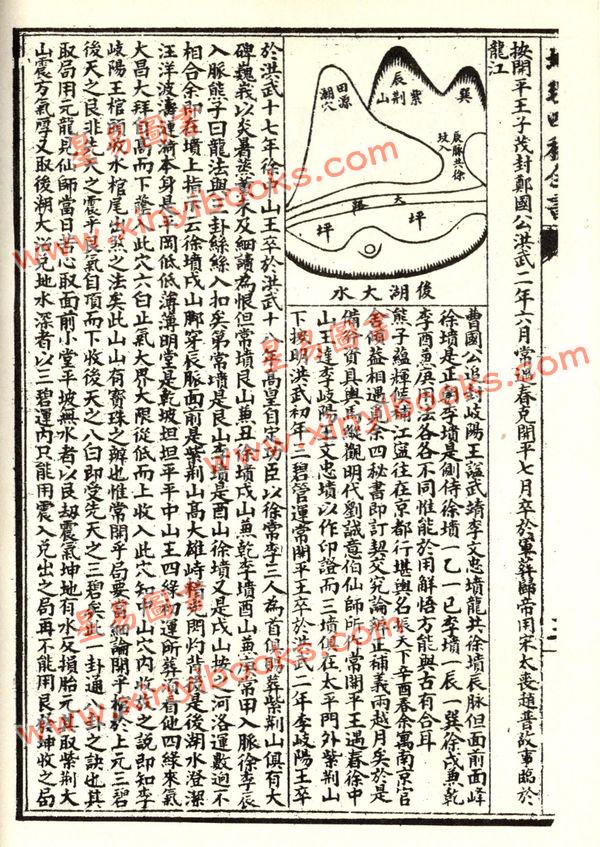 四秘全書
按開平王子茂封鄭國公洪武二年六月常遇春克開平七月卒於軍葬歸帝用宋太喪趙普故事臨於
龍江
巽
辰
紫荆山
田源潮穴
辰脈共徐坟入
大
坪
坪
後湖大水
曹國公追封岐陽王諡武靖李文忠墳龍共徐墳辰脈但面前面峰
徐墳是正朝李墳是側侍徐墳一乙一巳李墳一辰一巽徐戌兼乾
李酉兼庚用法各各不同惟能於用解悟方能與古有合耳
熊子蘊輝候補江寧往在京都行堪輿名振天下辛酉春余寓南京官
舍傾蓋相遇見余四秘書即訂契交究論辨正補義兩越月矣於是
備資具輿馬觀明代劉誠意伯仙師所作常開平王遇春徐中
山王達李岐陽王文忠墳以作印證而三墳俱在太平門外紫荆山
下按明洪武初年三碧管運常開平王卒於洪武二年李岐陽王卒
於洪武十七年徐中山王卒於洪武十八年高皇自定功臣以徐常李三人為首俱賜葬紫荆山俱有大
碑巍峩以炎暑蒸薰未及細讀為恨但常墳艮山兼丑徐墳戌山兼乾李墳酉山兼庚常甲入脈徐李辰
入脈熊子曰龍法與三卦絲絲入扣矣第常墳是艮山李墳是酉山徐墳又是戌山按之河洛運數迥不
相合余即在墳上指示云徐墳戌山脚穿辰脈面前是紫荆山高大雄峙閃灼背後是後湖水澄潔
汪洋波濤連漪本身是平岡低低薄薄明堂是乾坡坦坦平平中山王四綠初運所葬須看他四綠來氣
大昌大拜自高而下此穴六白正氣大界大限從低而上收入此穴知中山穴內收放之說即知李
岐陽王棺頭收水棺尾出煞之法矣此山山有寶珠之辨也惟常開平局要當細論開平於上元三碧
後天之艮非先天之震乎艮氣自頂而下收後天之八白即受先天之三碧矣此一卦通八卦之訣也其
取局用元龍見仙師當日苦心取面前小堂平坡無水者以艮劫震氣坤地有水反損胎元其取紫荆大
山震方氣浮又取後湖大河兌地水深者以三碧運內只能用震入兌出之局再不能用艮放坤收之局
星易圖書
www.xinyibooks.com
星易圖書
www.xinyibooks.com
星易圖書
www.xinyibooks.com